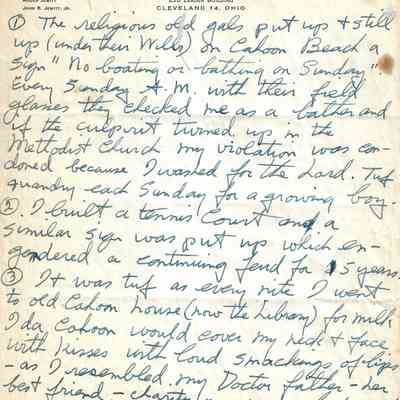 CLEVELAND 14, OHIO
① The religious old gals put up & still
up (under their Wills) on Cahoon Beach a
sign "No boating or bathing on Sunday".
Every Sunday A.M. with their field
glasses they checked me as a bather and
if the culpurit turned up in the
Methodist Church my violation was con-
doned because I washed for the Lord. Tuf
quandry each Sunday for a growing boy.
② I built a tennis Court and a
similar sign was put up which en-
gendered a continuing feud for 5 years.
③ It was tuf as every nite I went
to old Cahoon house (now the Library) for milk
Ida Cahoon would cover my neck & face
with kisses with loud smackings of lips
- as I resembled my Doctor father - her
best friend - charity